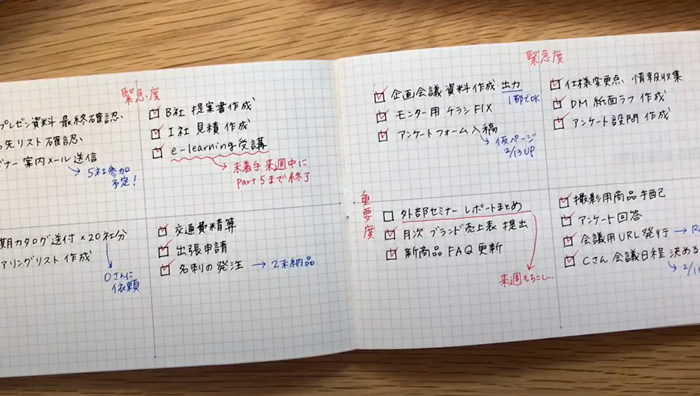 緊急度
プレゼン資料 最終確認、
先リスト確認、
ナー 案内メール送信
5社参加
予定！
B社 提案書作成
I社 見積 作成
e-learning受講
未着手 来週中に
Part 5まで終了
期カタログ送付 ×20社分
アリングリスト 作成
Oさんに
依頼
交通費精算
出張申請
名刺の発注 → 2末納品
緊急度
重要度
企画会議 資料作成 出力
1部でOK
モニター用 チラシ FIX
アンケートフォーム 入稿
仮ページ
2/13 UP
仕様変更点、情報収集
DM 紙面ラフ 作成
アンケート設問 作成
外部セミナー レポートまとめ
月次 ブランド売上表 提出
新商品 FAQ 更新
来週もちこし…
撮影用商品手配
アンケート回答
会議用URL発行 →
Cさん 会議日程 決める